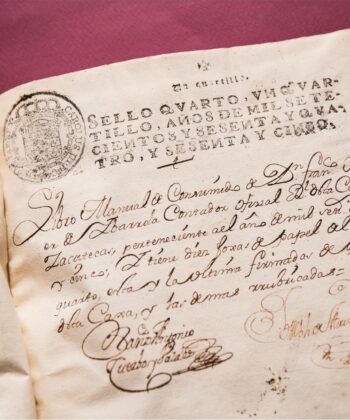 Un quartillo.
SELLO QVARTO, VN QVAR-
TILLO, AÑOS DE MIL SETE-
CIENTOS Y SESENTA Y QVA-
TRO, Y SESENTA Y CINCO.
Libro Manual de Consumido de Dn Franco
er de Ybarrola Contador Oficial Rl de la C
Zacatecas, perteneciente al año de mil set
y cinco, y tiene diez foxas de papel del
quarto, esta y la ultima firmadas de
dha Caxa, y las demas rubricadas=
Antonio